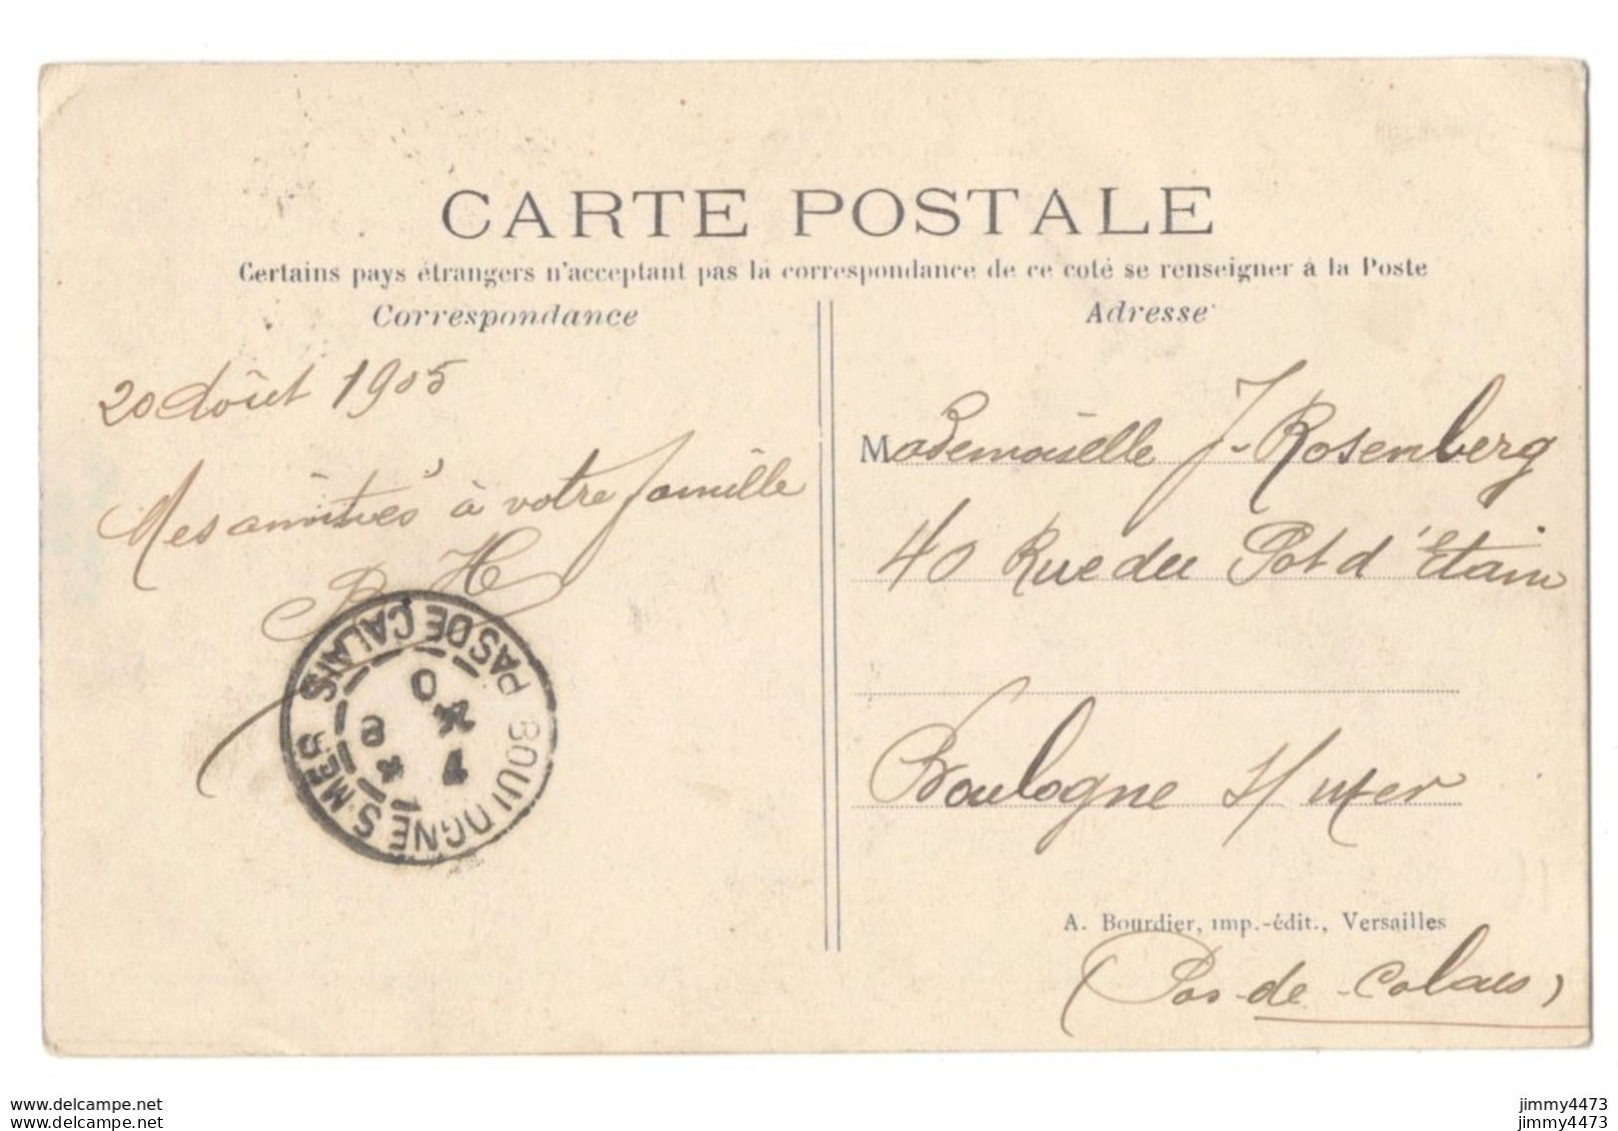 CARTE POSTALE
Certains pays étrangers n'acceptant pas la correspondance de ce coté se renseigner à la Poste
Correspondance
20 Aôut 1905
Mes amitiés à votre famille
B H
Adresse
Mademoiselle J. Rosenberg
40 Rue du Pot d'Etain
Boulogne s/ mer
A. Bourdier, imp.-édit., Versailles
(Pas-de-Calais)
BOULOGNE S MER PAS DE CALAIS
www.delcampe.net
www.delcampe.net
jimmy4473
jimmy4473